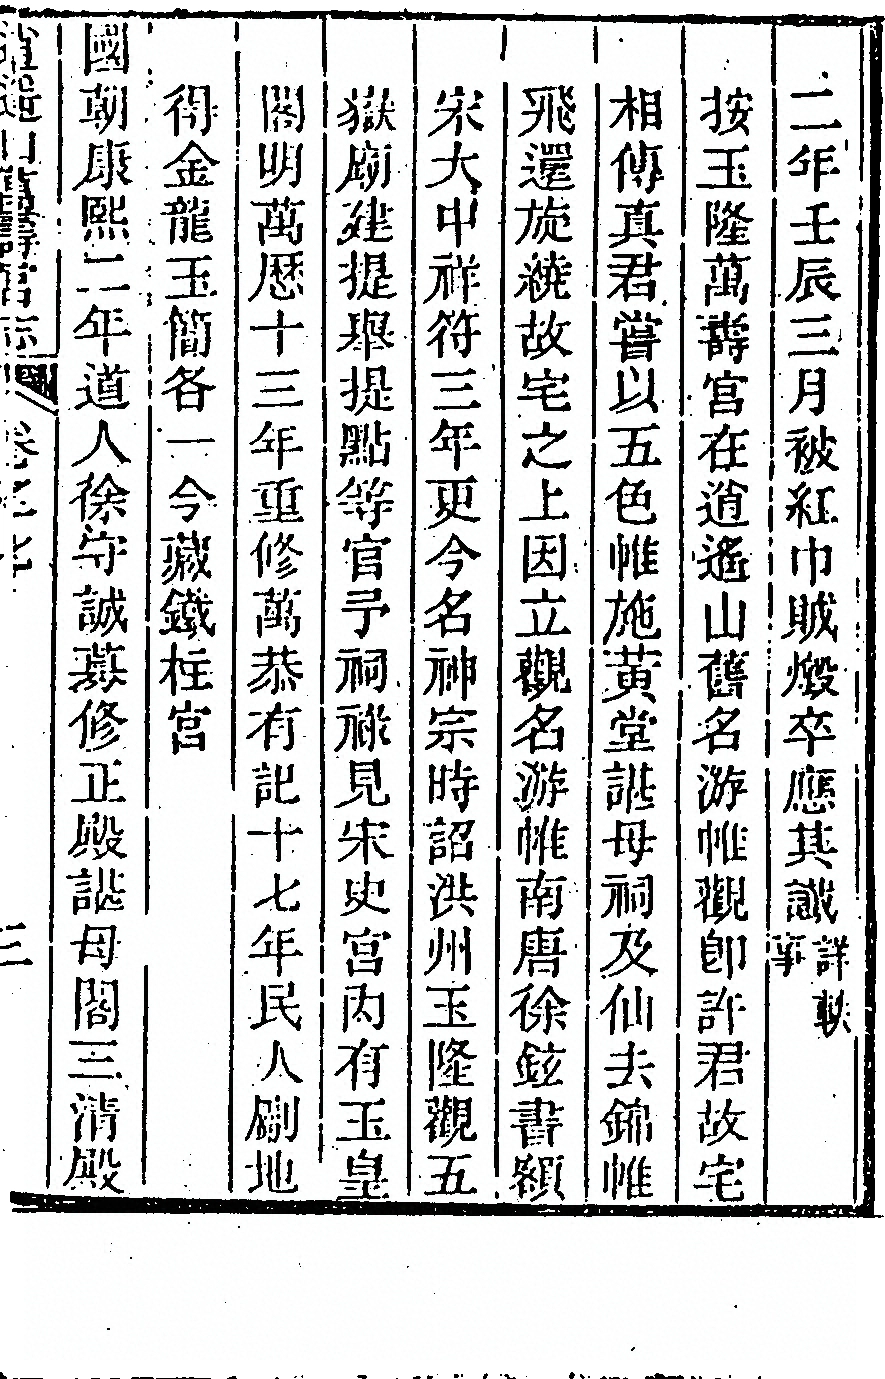 二年壬辰三月被紅巾賊燬卒應其讖詳軼事
按玉隆萬壽宮在逍遙山舊名游帷觀卽許君故宅
相傳真君嘗以五色帷施黃堂諶母祠及仙去錦帷
飛還旋繞故宅之上因立觀名游帷南唐徐鉉書額
宋大中祥符三年更今名神宗時詔洪州玉隆觀五
嶽廟建提舉提點等官予祠祿見宋史宮內有玉皇
閣明萬厯十三年重修萬恭有記十七年民人劚地
得金龍玉簡各一今藏鐵柱宮
國朝康熙二年道人徐守誠募修正殿諶母閣三清殿
逍遙山萬壽宮志
卷之七
三